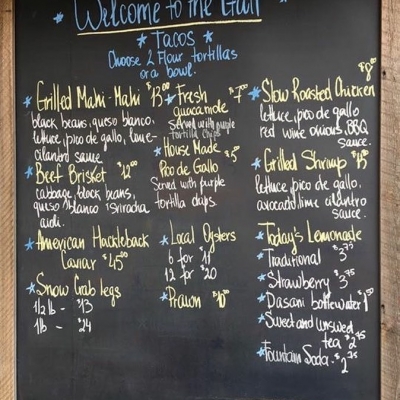 Welcome to the Gulf
Tacos
Choose 2 Flour tortillas
or a bowl.
Grilled Mahi-Mahi $13.00
black beans, queso blanco,
lettuce, pico de gallo, lime-
cilantro sauce
Beef Brisket $12.00
cabbage, black beans,
queso blanco sriracha
aioli.
American Hackleback
Caviar $45.00
Snow Crab legs
1/2 lb - $13
1 lb - $24
Fresh $7.00
guacamole
Served with purple
tortilla chips
House Made
Pico De Gallo $5.00
Served with purple
tortilla chips.
Local Oysters
6 for $11
12 for $20
Prawn $10.00
Slow Roasted Chicken $8.00
lettuce, pico de gallo
red wine onions, BBQ
sauce.
Grilled Shrimp
lettuce, pico de gallo,
avocado lime cilantro
sauce.
Today's Lemonade
Traditional $3.75
Strawberry $3.75
Dasani bottle water
Sweet and unswed
tea $2.75
Fountain Soda - $2.75